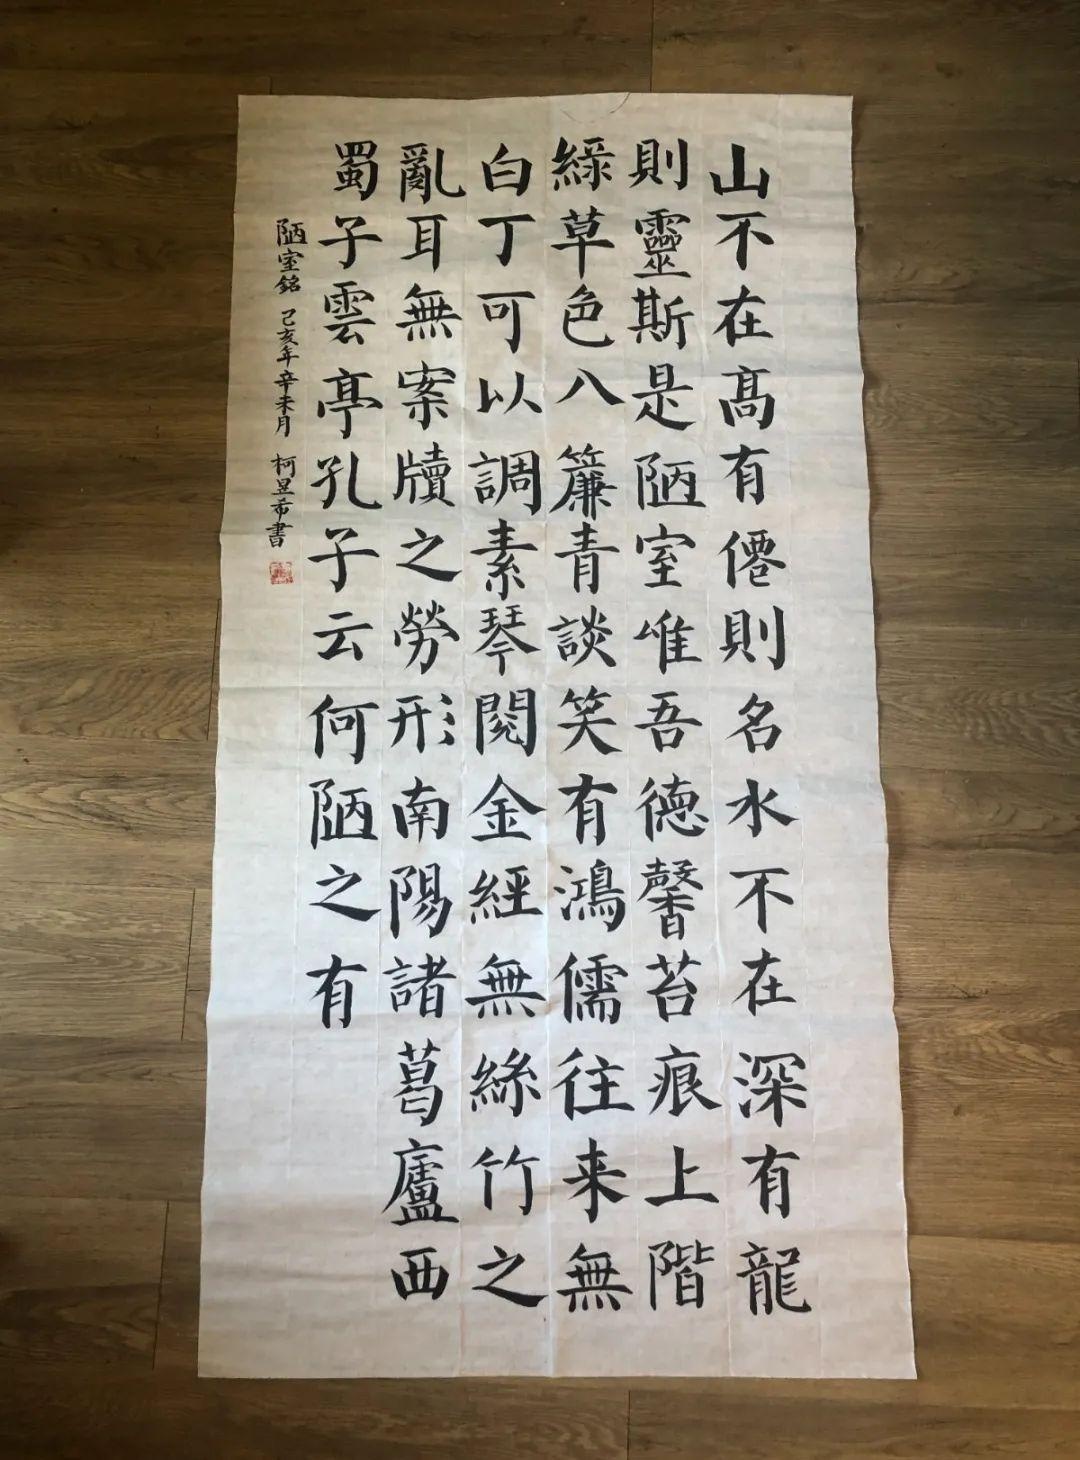 山不在高有僊則名水不在深有龍
則靈斯是陋室唯吾德馨苔痕上階
綠草色八簾青談笑有鴻儒往来無
白丁可以調素琴閱金經無絲竹之
亂耳無案牘之勞形南陽諸葛廬西
蜀子雲亭孔子云何陋之有
陋室銘 己亥年辛未月 柯昱希書